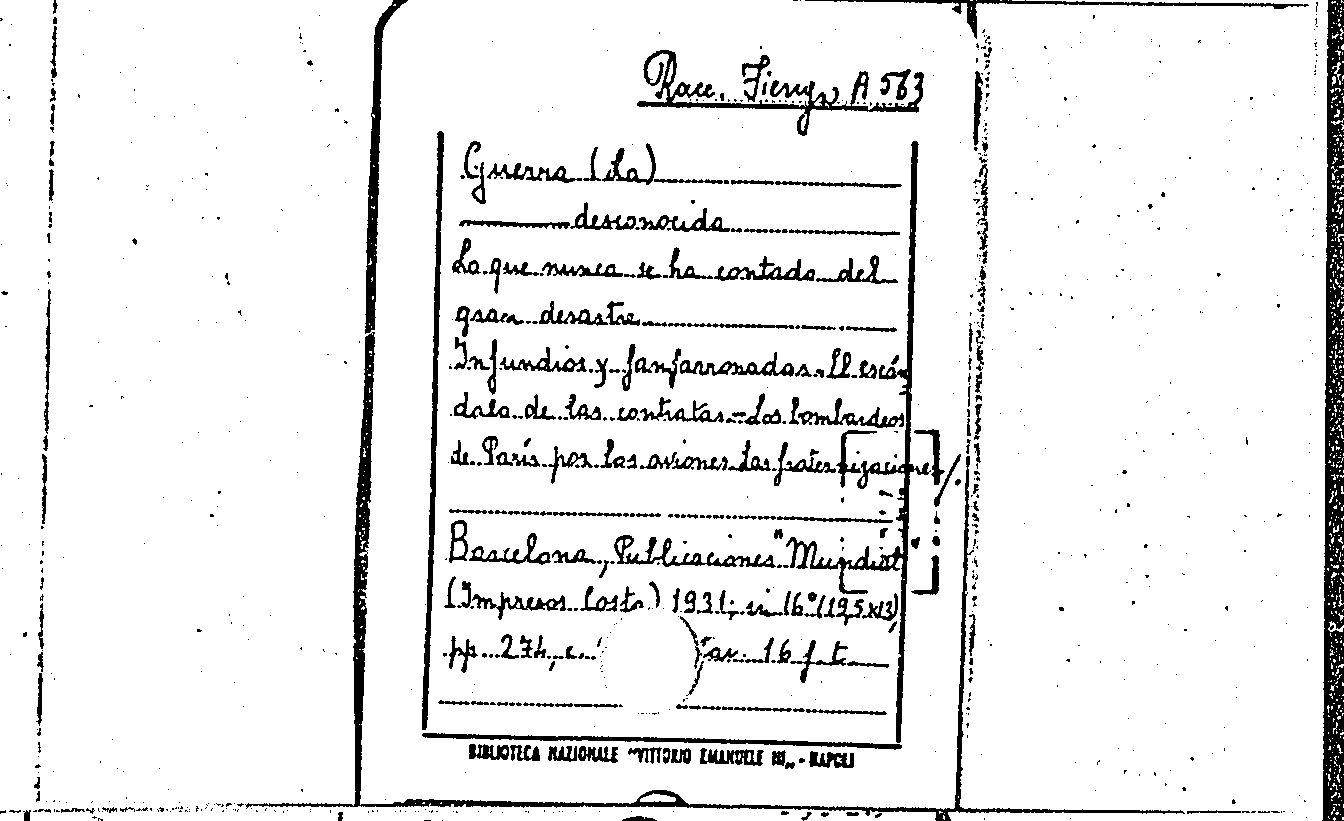 Racc. Fiengo A 563
Guerra (La)
——— desconocida
Lo que nunca se ha contado del
gran desastre
Infundios y fanfarronadas. El escán
dalo de las contratas = Los bombardeos
de París por los aviones. Las fraternizaciones
Barcelona, Publicaciones "Mundial"
(Impresos Costa) 1931; in 16° (19,5x13),
pp 274, c. tav. 16 f. t.
BIBLIOTECA NAZIONALE "VITTORIO EMANUELE III" - NAPOLI